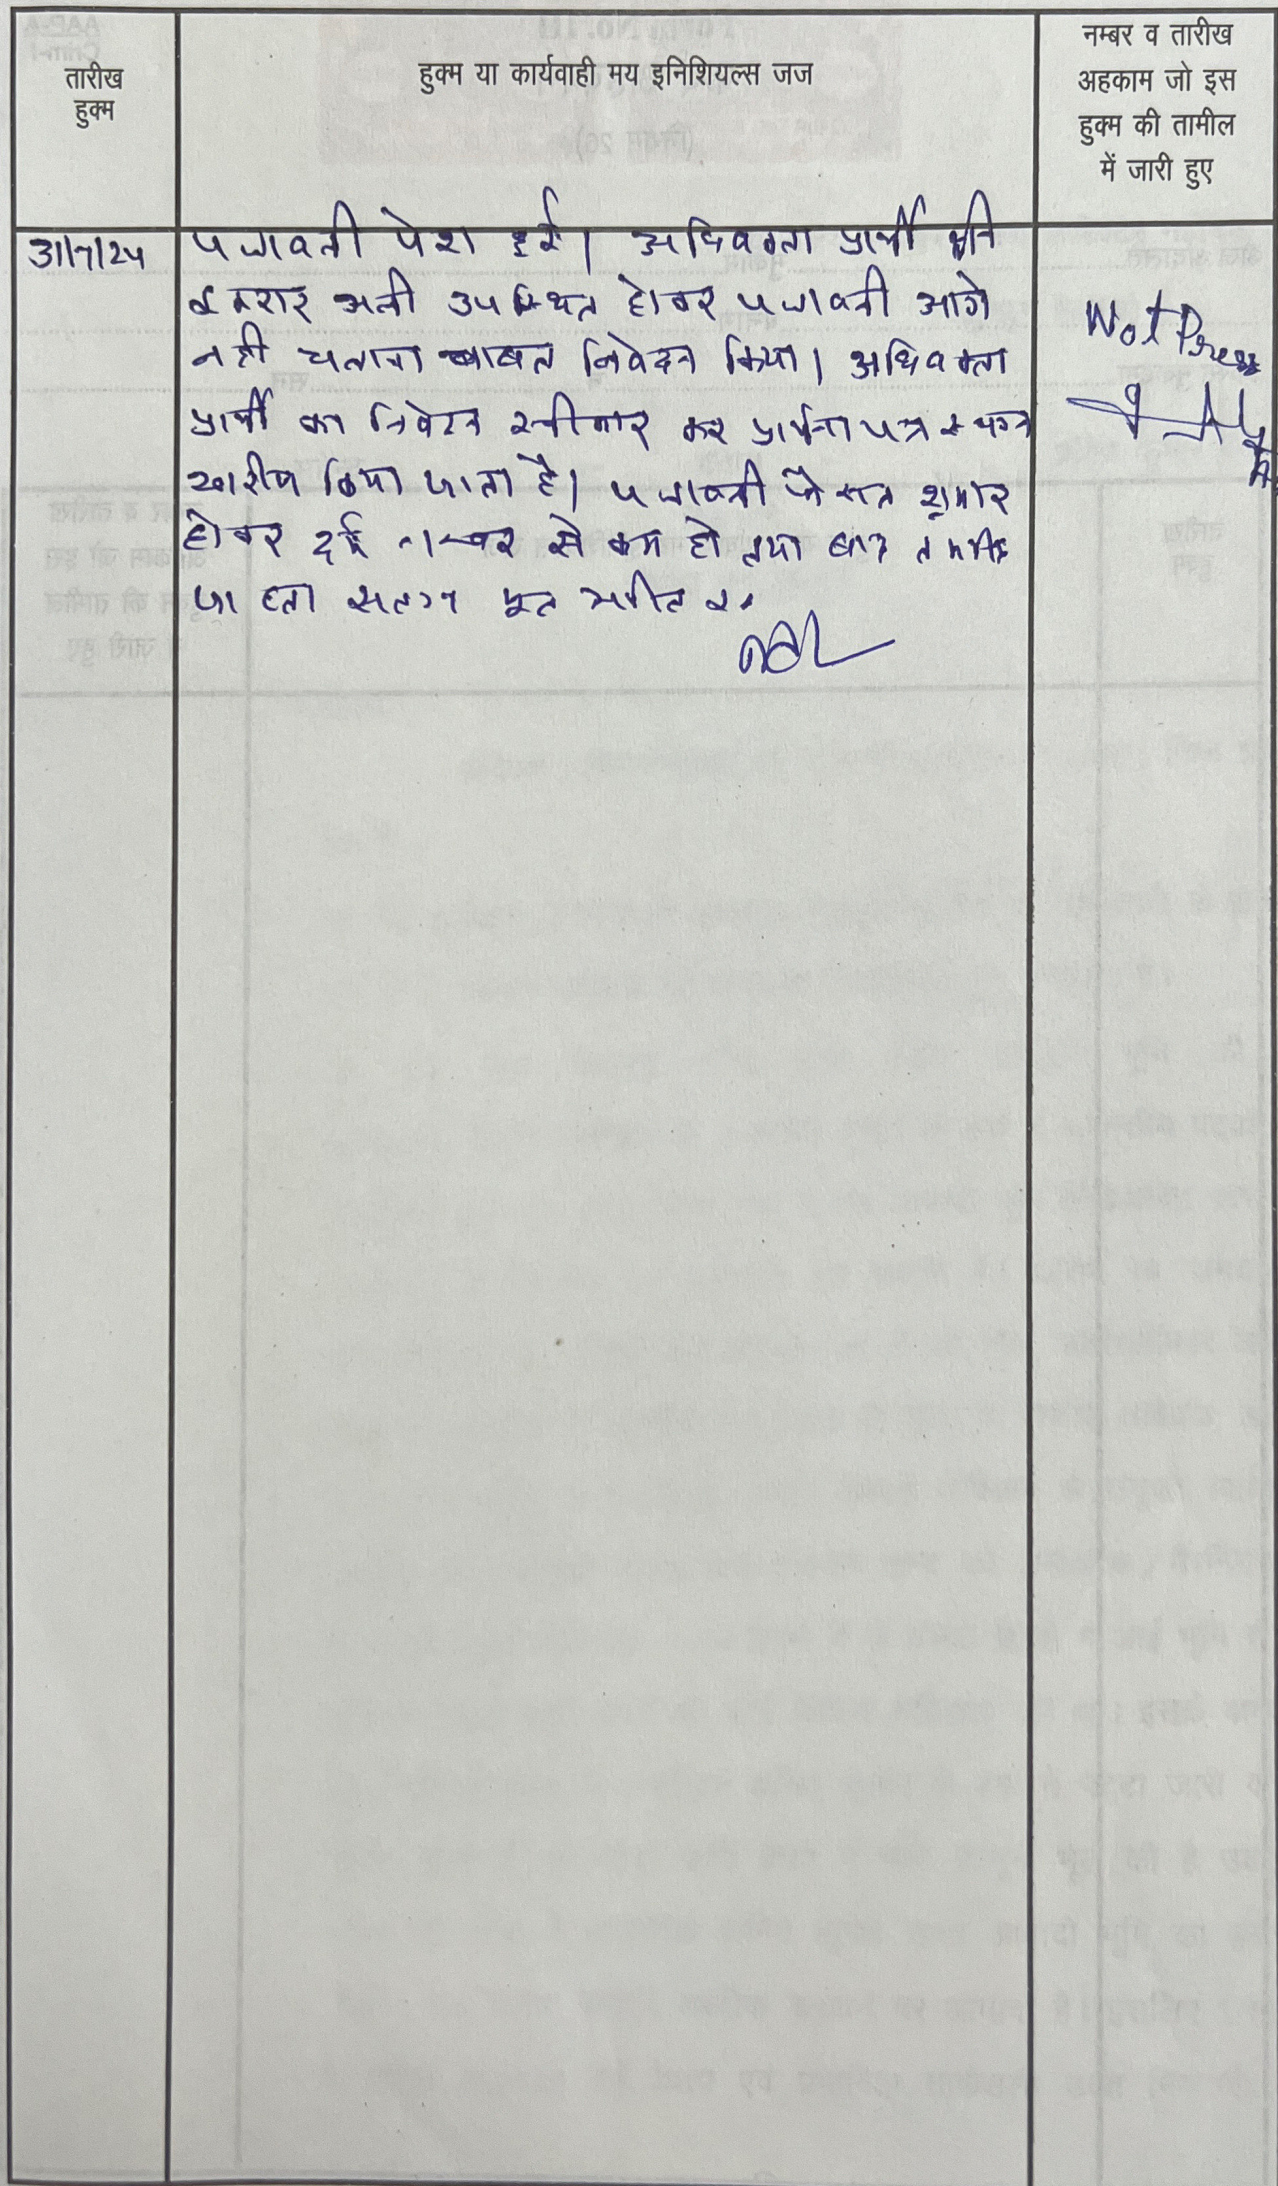 तारीख
हुक्म
हुक्म या कार्यवाही मय इनिशियल्स जज
नम्बर व तारीख
अहकाम जो इस
हुक्म की तामील
में जारी हुए
31/7/24
पत्रावली पेश हुई। अधिवक्ता प्रार्थी श्री
इकरार अली उपस्थित होकर पत्रावली आगे
नही चलाना बाबत निवेदन किया। अधिवक्ता
प्रार्थी का निवेदन स्वीकार कर प्रार्थना पत्र स्थगन
खारीज किया जाता है। पत्रावली फैसल शुमार
होकर दर्ज नम्बर से कम हो तथा बाद
संलग्न मूल
Not Press